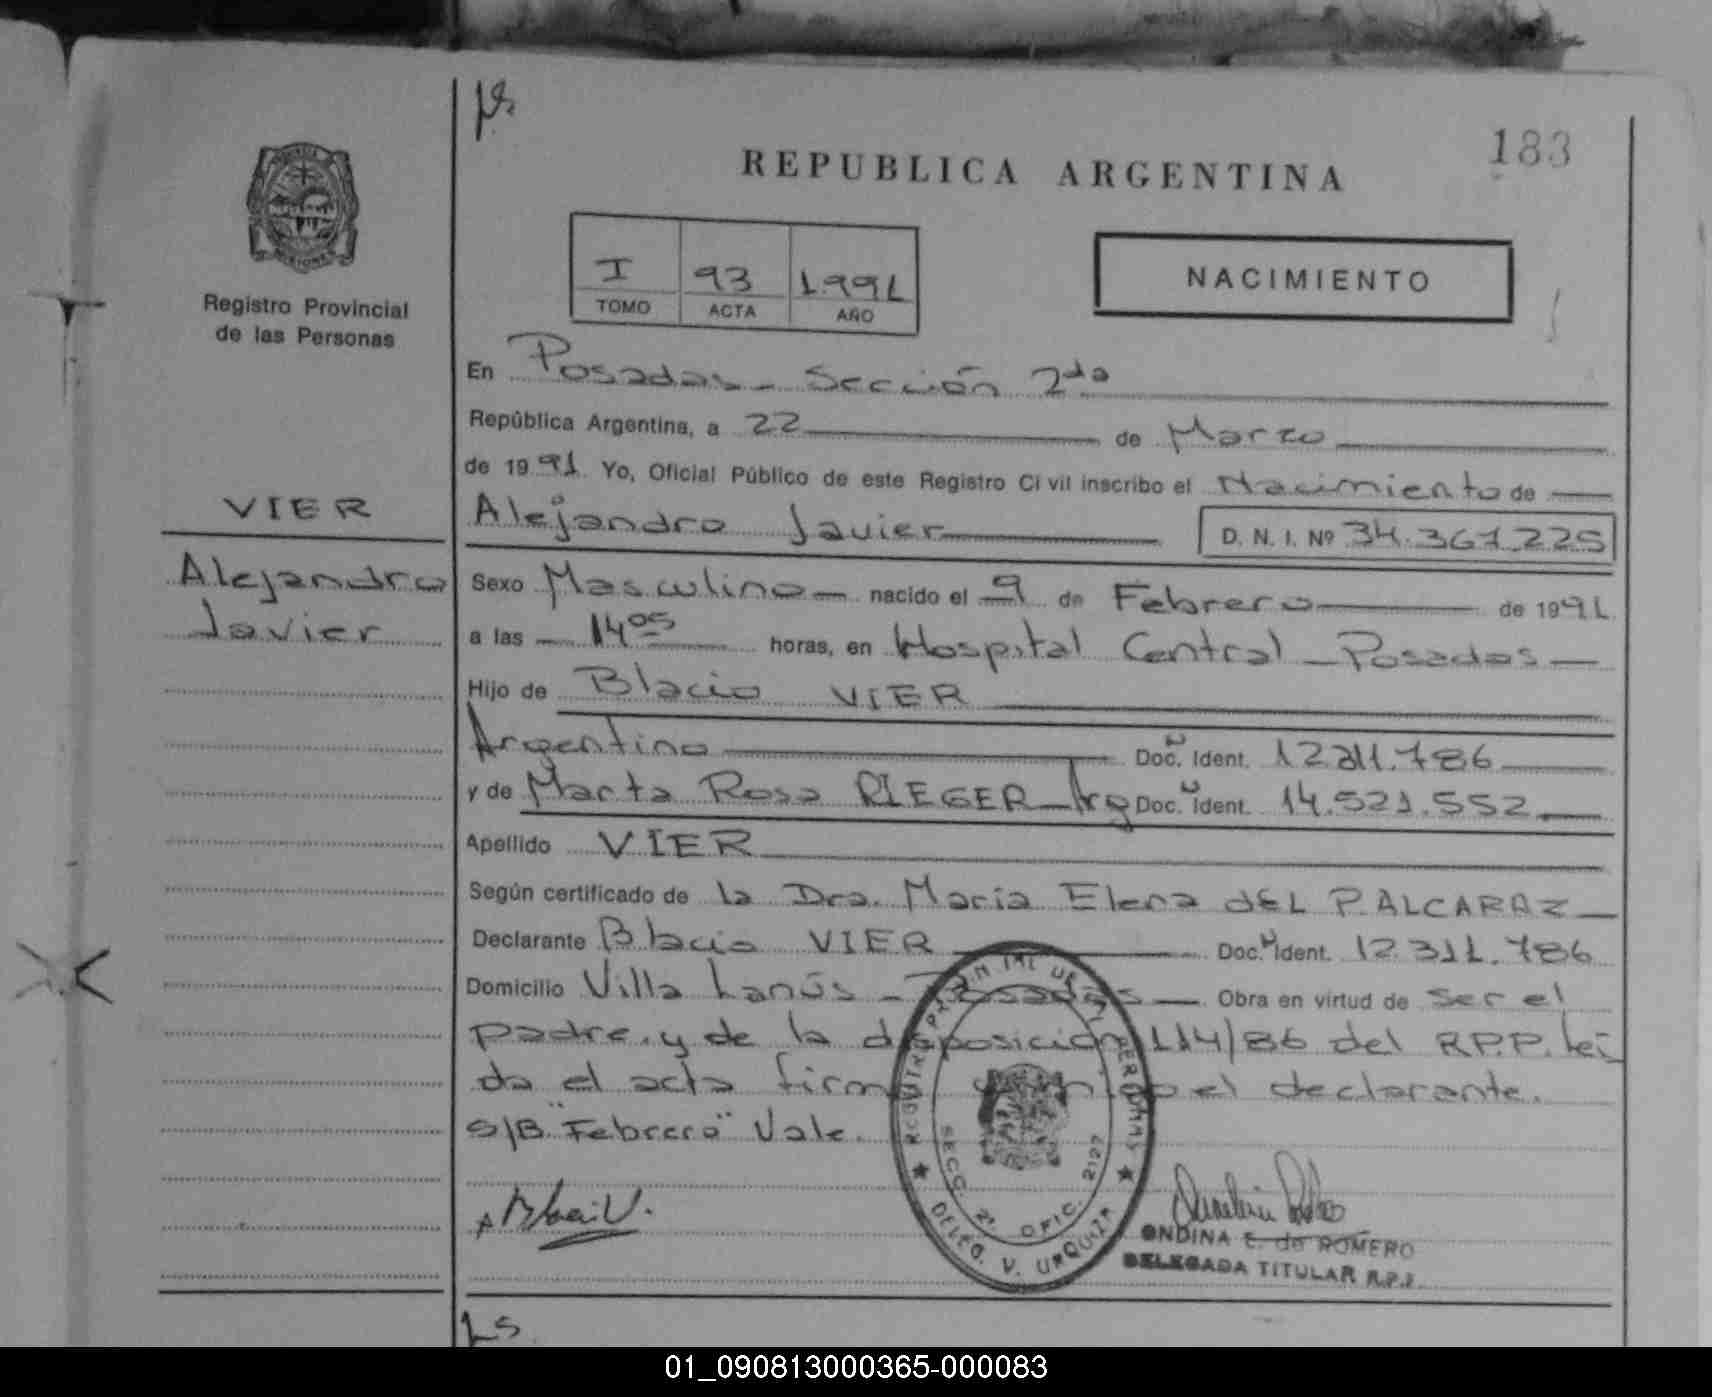 183
REPUBLICA ARGENTINA
I 93 1.991
TOMO ACTA AÑO
NACIMIENTO
Registro Provincial
de las Personas
En Posadas - Sección 2da
República Argentina, a 22 de Marzo
de 1991 Yo, Oficial Público de este Registro Civil inscribo el Nacimiento de
VIER
Alejandro Javier D. N. I. Nº 34.361.225
Alejandro
Javier
Sexo Masculino nacido el 9 de Febrero de 1991
a las 14 05 horas, en Hospital Central - Posadas
Hijo de Blacio VIER
Argentino Doc. Ident. 12.311.786
y de Marta Rosa RIEGER Arg Doc. Ident. 14.521.552
Apellido VIER
Según certificado de la Dra. María Elena dEL P. ALCARAZ
Declarante Blacio VIER Doc. Ident. 12.311.786
Domicilio Villa Lanús - Posadas Obra en virtud de ser el
padre, y de la disposición 114/86 del R.P.P. leí
da el acta firma el declarante.
S/B "Febrero" Vale.
SECC. 2ª OFIC. 2127
DELEG. V. URQUIZA
ONDINA E. de ROMERO
DELEGADA TITULAR R.P.P.
01_090813000365-000083